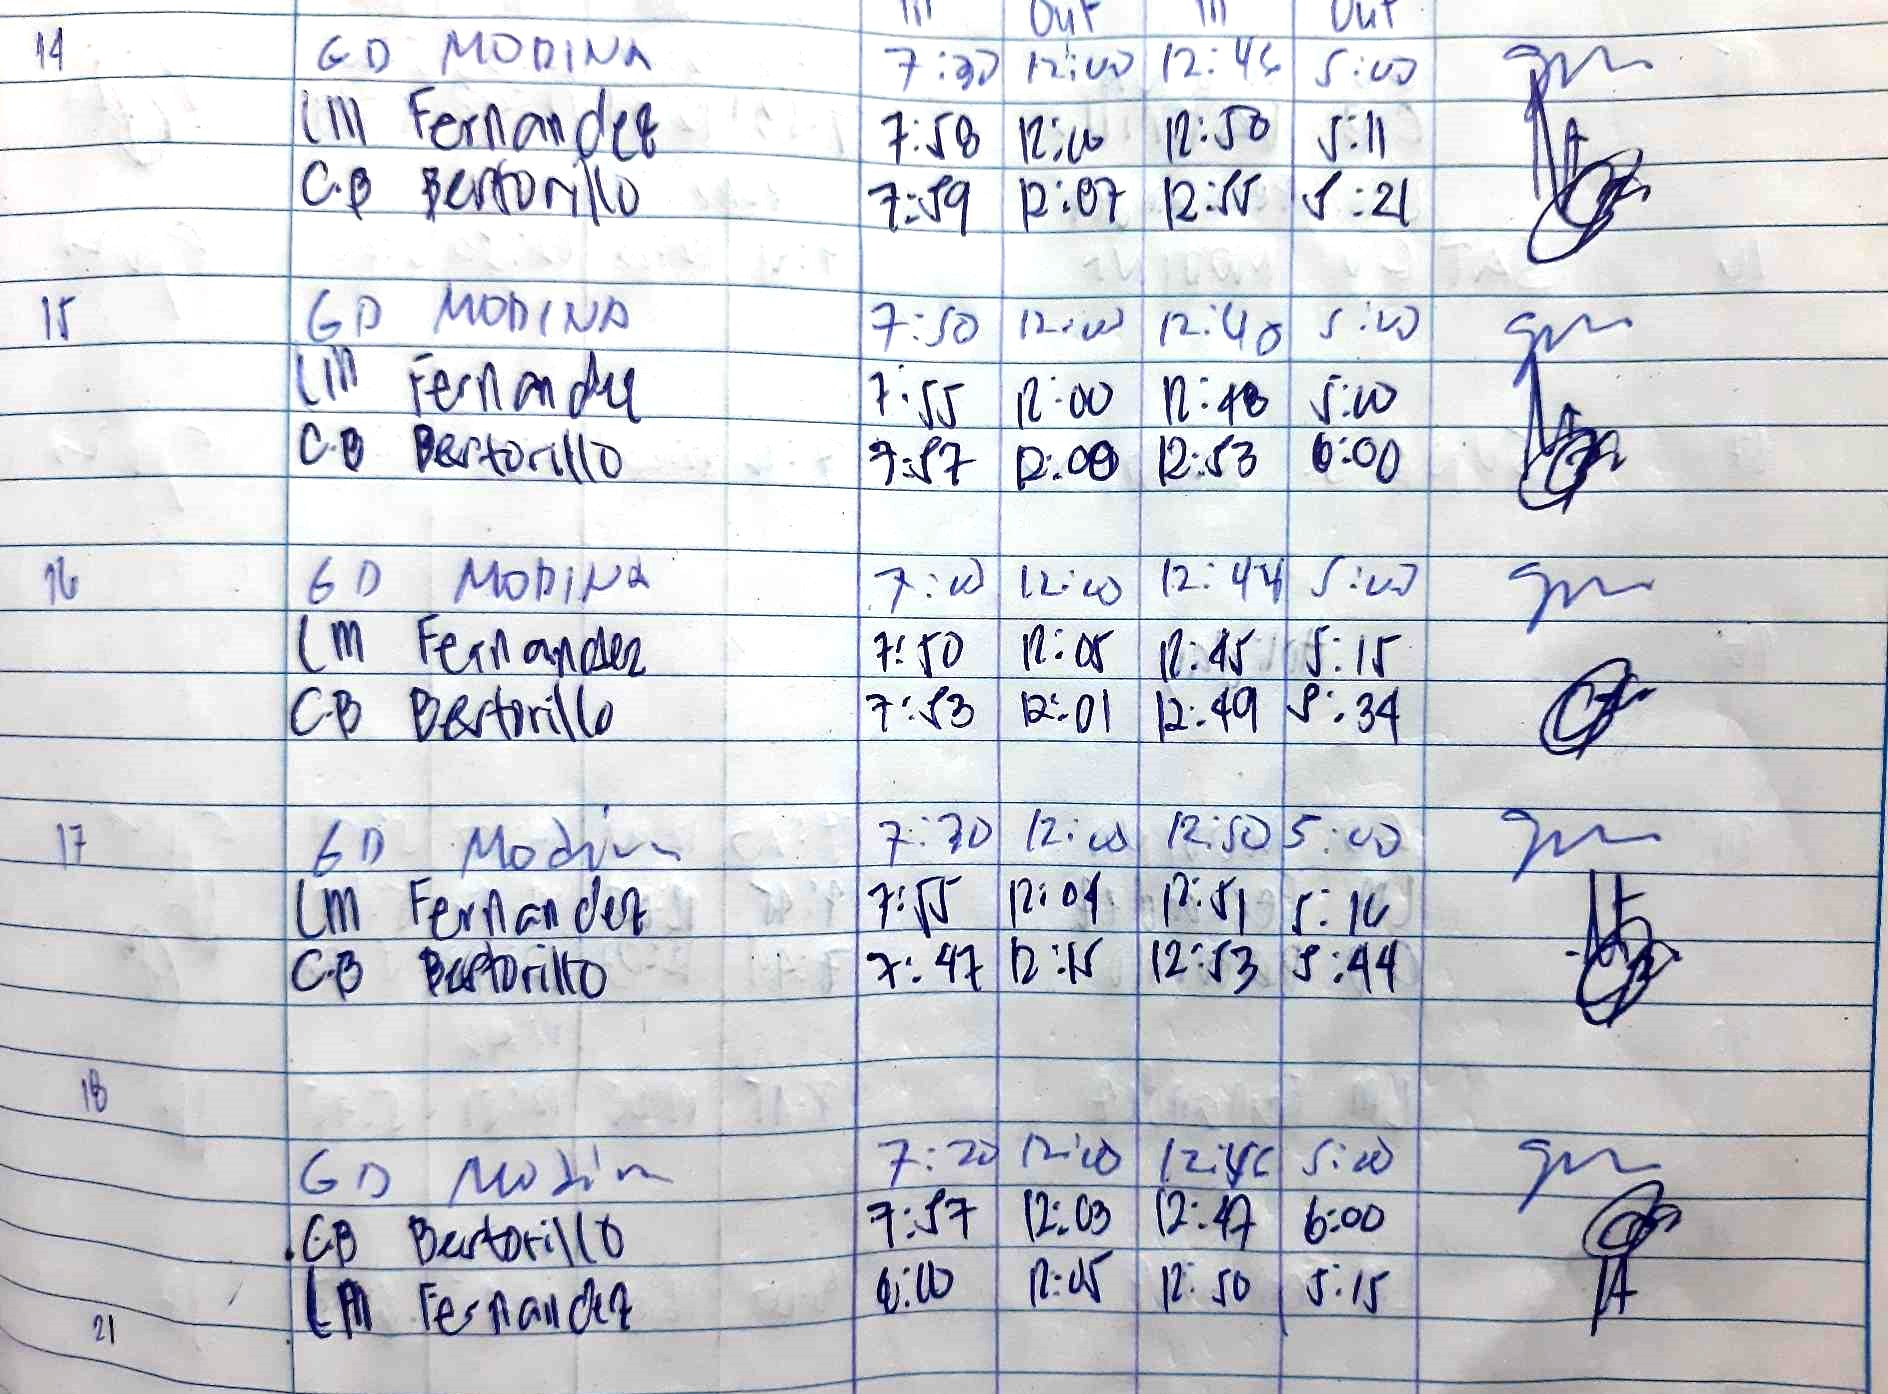 In Out In Out
14 GD MODINA 7:30 12:00 12:46 5:00
LM Fernandez 7:58 12:00 12:50 5:11
C.B Bertorillo 7:59 12:07 12:55 5:21
15 GD MODINA 7:50 12:00 12:40 5:00
LM Fernandez 7:55 12:00 12:48 5:00
C.B Bertorillo 7:57 12:00 12:53 6:00
16 GD MODINA 7:00 12:00 12:44 5:00
LM Fernandez 7:50 12:05 12:45 5:15
C.B Bertorillo 7:53 12:01 12:49 5:34
17 GD Modina 12:00 12:50 5:00
LM Fernandez 7:55 12:04 12:51
C.B Bertorillo 7:47 12:15 12:53 5:44
18
GD Modina 7:20 12:00 5:00
C.B Bertorillo 7:57 12:03 12:47 6:00
LM Fernandez 8:00 12:05 12:50 5:15
21